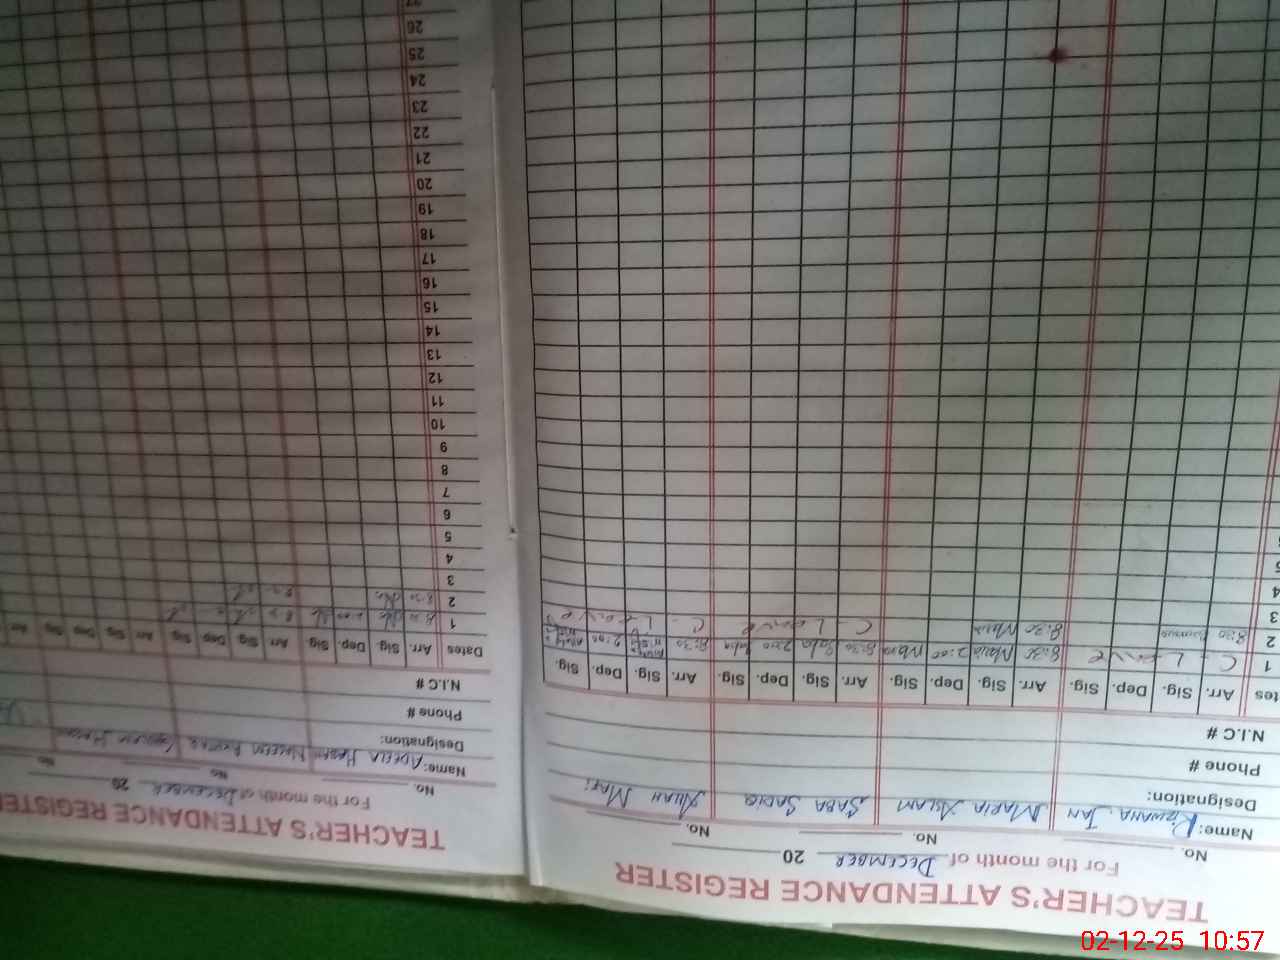 TEACHER'S ATTENDANCE REGISTER
For the month of DECEMBER 20
No. No. No.
Name: RIZWANA JAN MARIA ASLAM SABA SADIQ
Designation:
Phone #
N.I.C #
Arr. Sig. Dep. Sig. Arr. Sig. Dep. Sig. Arr. Sig. Dep. Sig. Arr. Sig. Dep. Sig.
1 C - Leave 8:30 Maria 2:00 Maria 8:30 Saba 2:00 Saba 8:30 2:00
2 8:30 8:30 Maria C - Leave C - Leave
3
4
5
TEACHER'S ATTENDANCE REGISTER
For the month of DECEMBER 20
No. No. No.
Name: ADEELA HASAN NAEEM AKHTAR
Designation:
Phone #
N.I.C #
Dates Arr. Sig. Dep. Sig. Arr. Sig. Dep. Sig. Arr. Sig. Dep. Sig. Arr
1
2 8:30
3
4
5
6
7
8
9
10
11
12
13
14
15
16
17
18
19
20
21
22
23
24
25
26
27
02-12-25 10:57